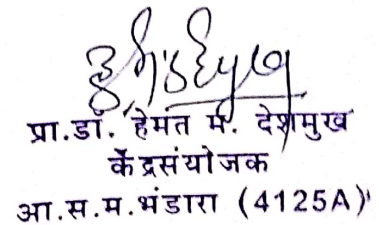 प्रा.डॉ. हेमंत म. देशमुख
केंद्रसंयोजक
आ.स.म.भंडारा (4125A)